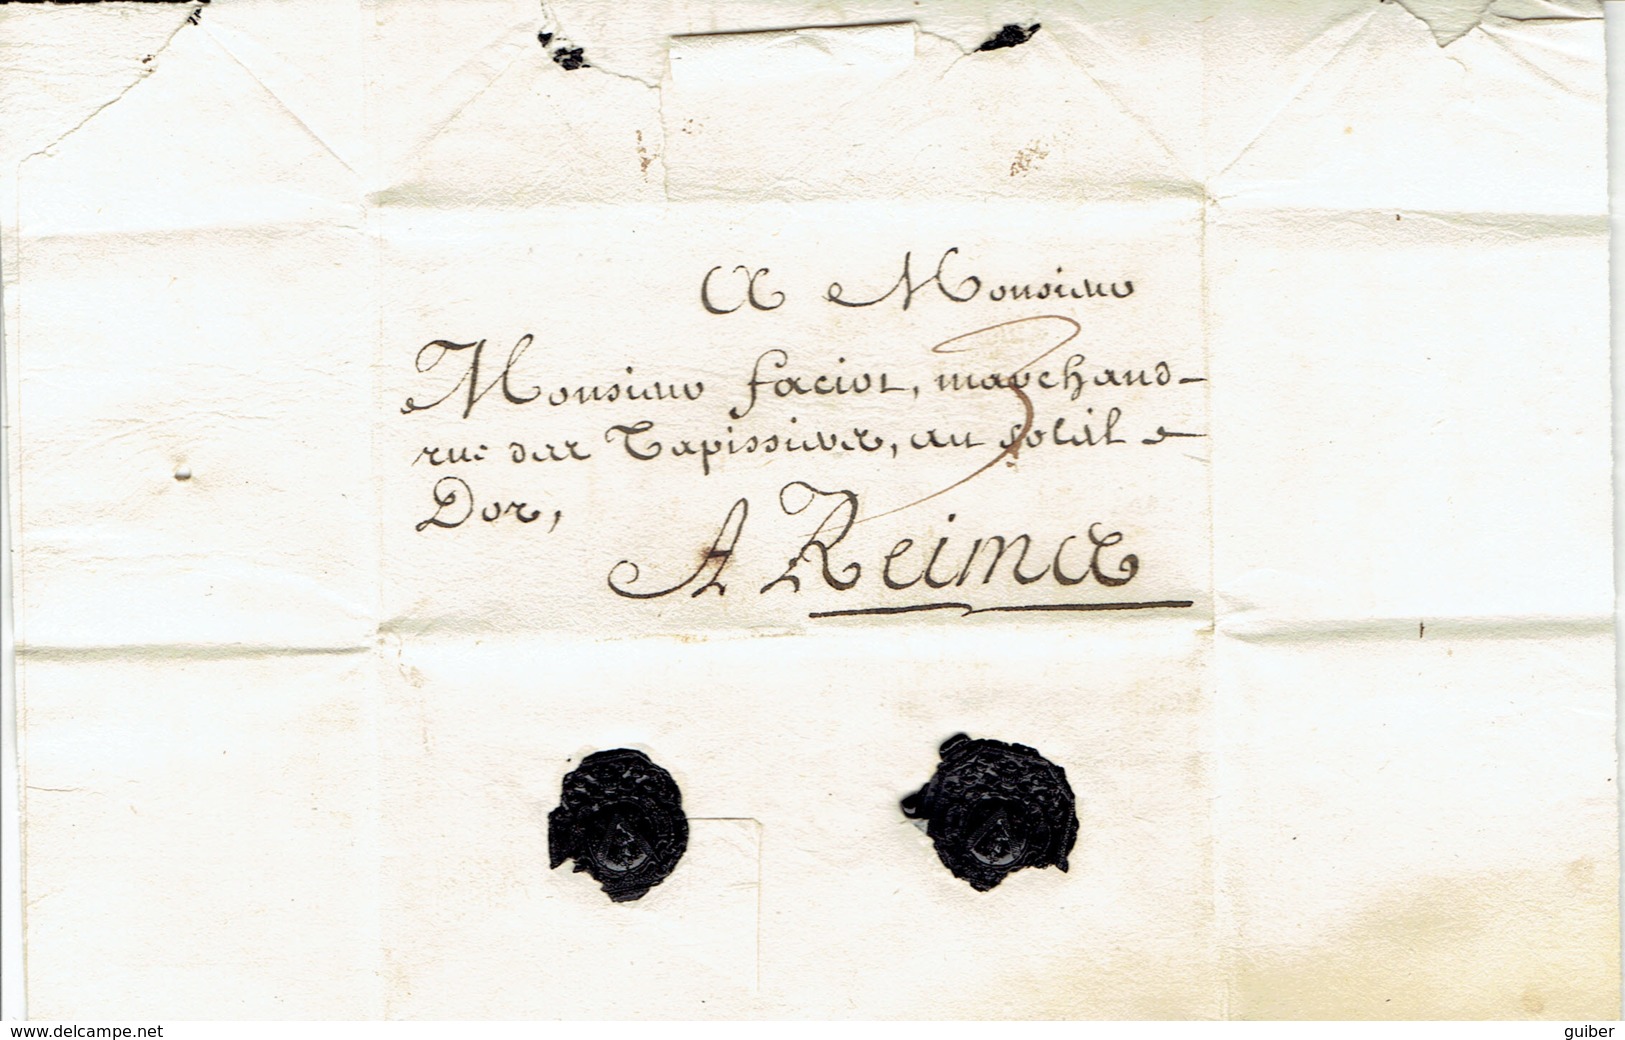 A Monsieur
Monsieur faciot, marchand
rue des Tapissiers, au soleil
Dor,
3
A Reims
www.delcampe.net
guiber